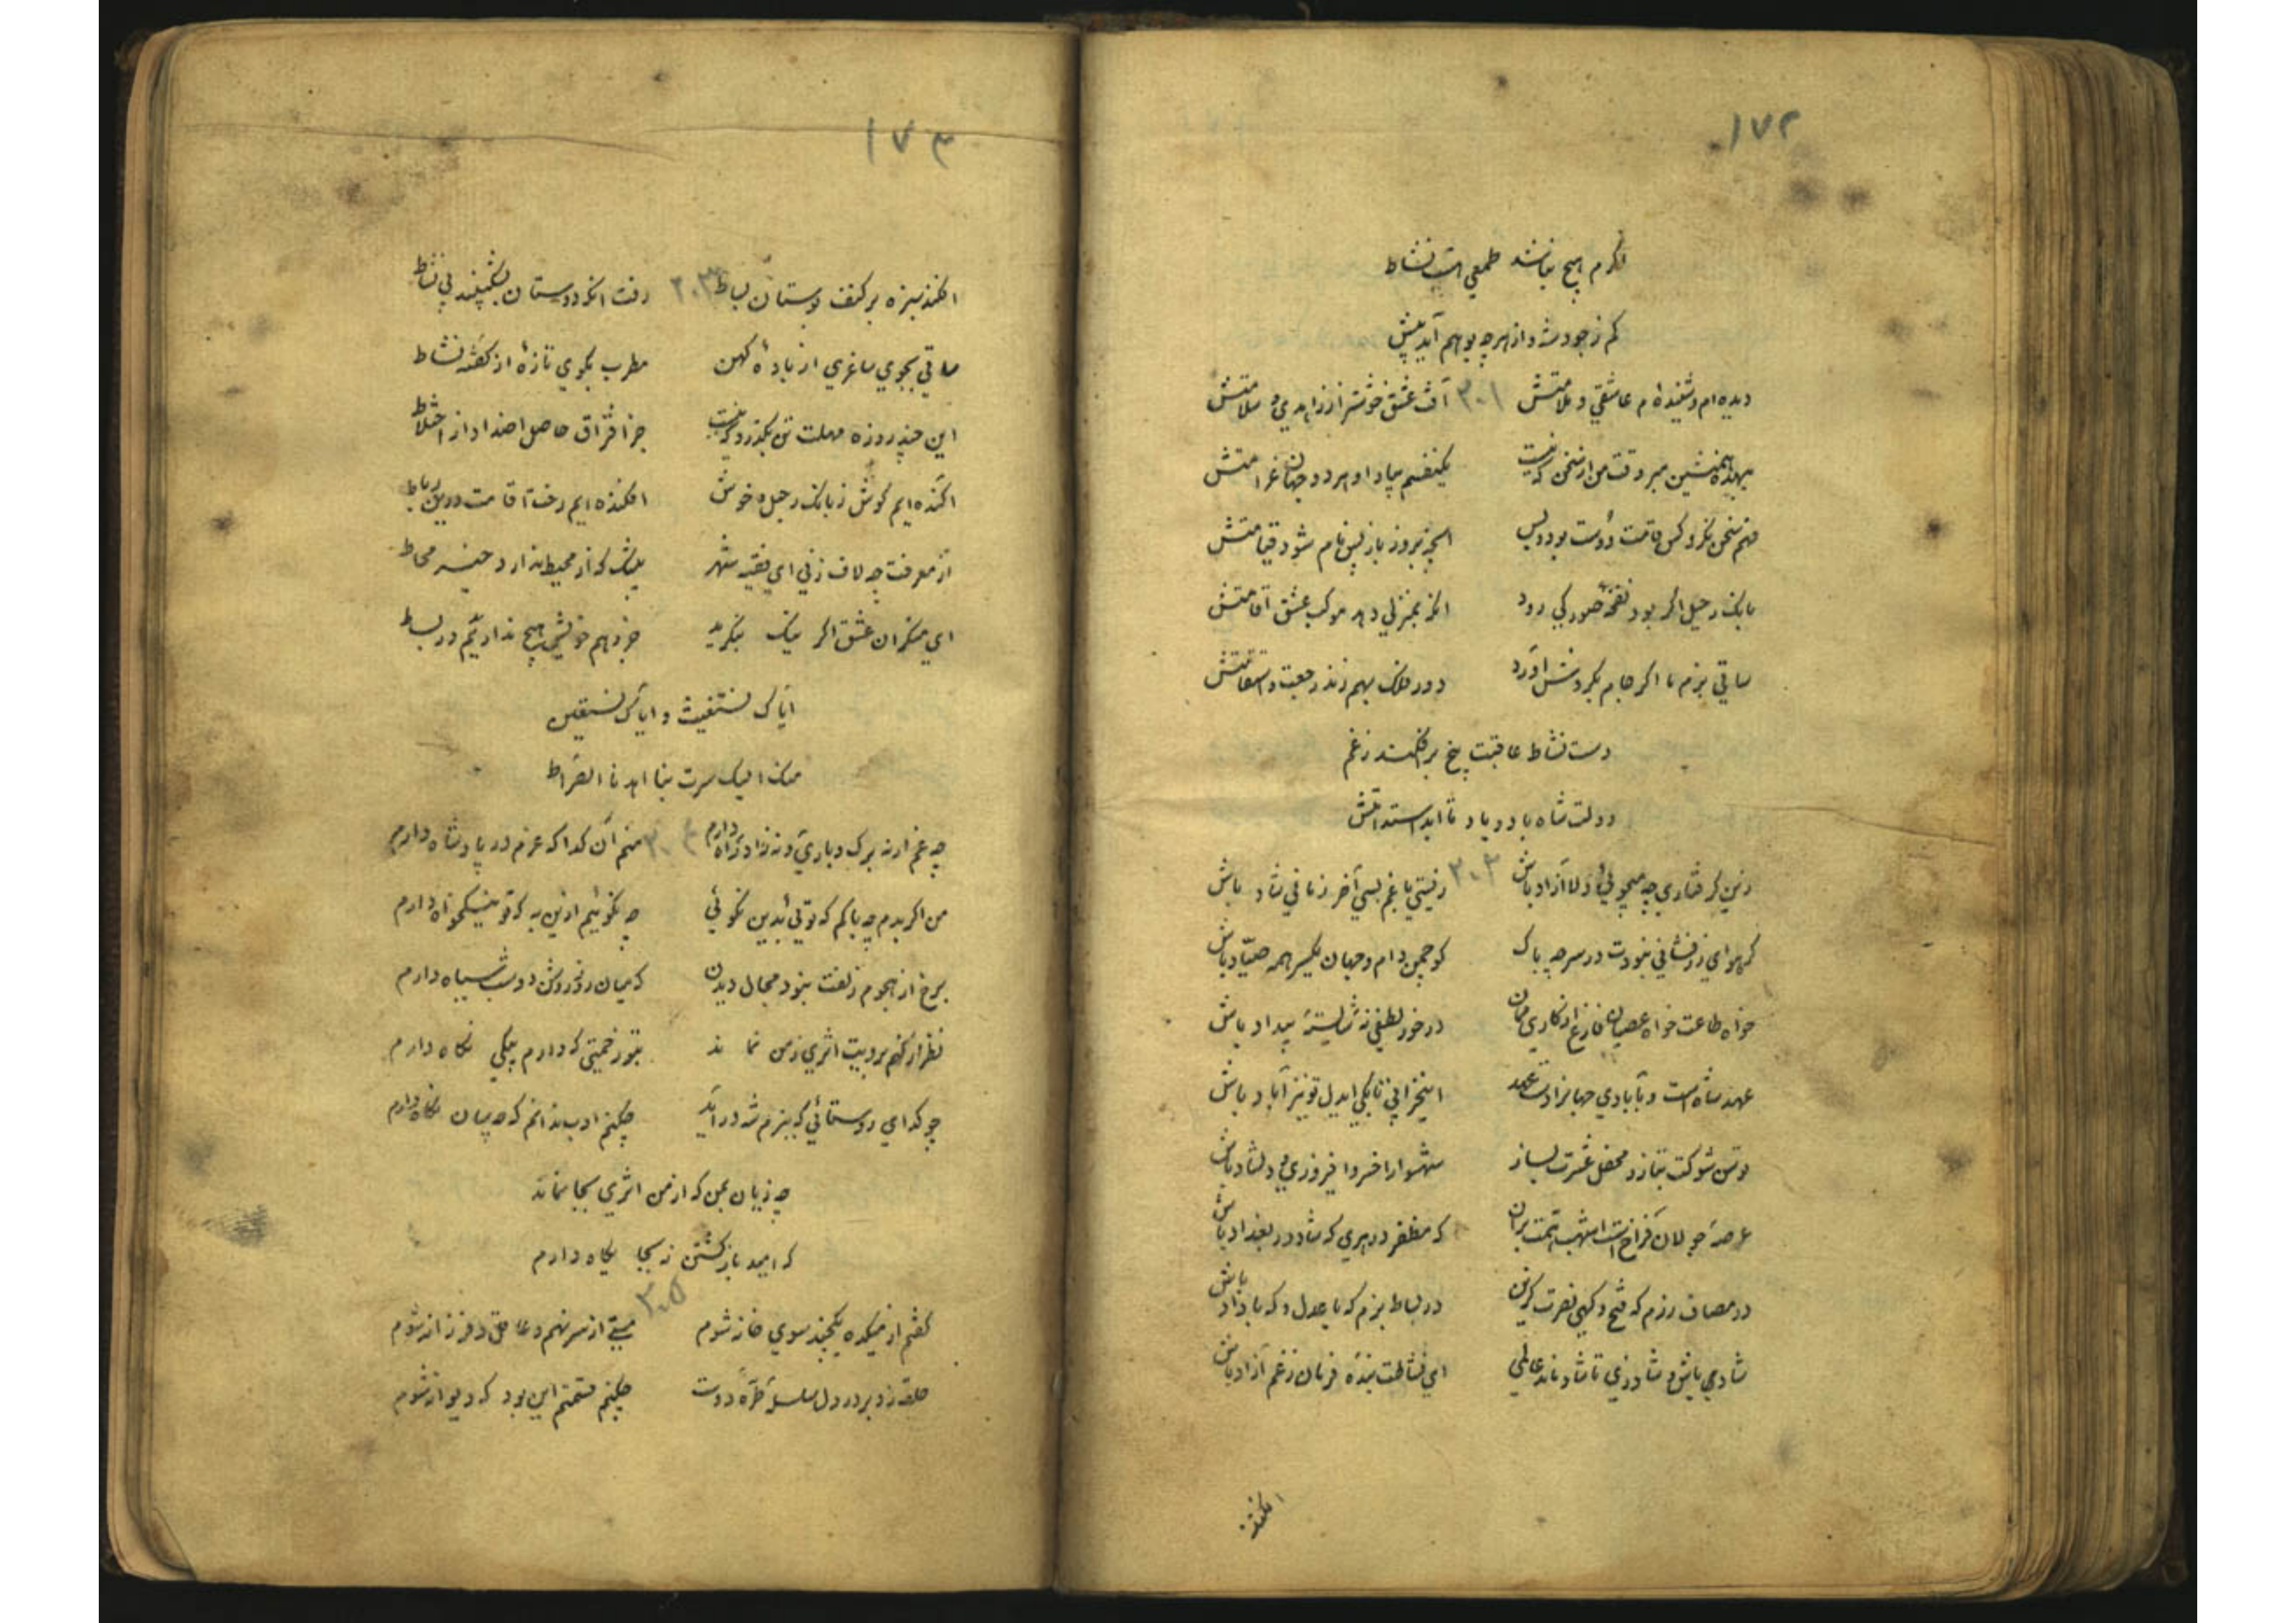 ۱۷۲
اگرم هیچ نباشد طمعی هست نشاط
کم ز جود شه و از هر چه بود هم آید پیش
دیده‌ام و شنیده‌ام عاشقی و ملامتش ۳۰۱ آفت عشق خوشتر از زاهدی و سلامتش
بیهده همنشین مبر وقت من از سخن که نیست یکنفسم بیاد او هر دو جهان غرامتش
فهم سخن نکرد کس قامت دوست بود و بس آنچه بروز بازپس نام شود قیامتش
بانک رحیل اگر بود نفخهٔ صور کی رود آنکه بمنزلی دهد موکب عشق اقامتش
ساقی بزم ما اگر جام بگردش آورد دور فلک بهم زند رجعت و استقامتش
دست نشاط عاقبت بیخ برافکند ز غم
دولت شاه باد و باد تا ابد استدامتش
زین گرفتاری چه میجوئی دلا آزاد باش ۳۰۲ زیستی با غم بسی آخر زمانی شاد باش
گر هوای زرفشانی نبودت در سر چه باک کو چمن دام و جهان یکسر همه صیاد باش
خواه طاعت خواه عصیان فارغ از کاری ممان درخور لطفی نهٔ شایستهٔ بیداد باش
عهد شاه است و بآبادی جهانرا دست عهد این خرابی تا بکی ایدل تو نیز آباد باش
توسن شوکت بتاز و محفل عشرت بساز شهسوارا خسروا فیروزی و دلشاد باش
عرصهٔ جولان فراخ است اشهب همت بران که مظفر در هری که شاد در بغداد باش
در مصاف رزم که فتح و گهی نصرت گزین در بساط بزم که با عدل و که با داد باش
شادمی باش و شاد زی تا شاد ماند عالمی ای نشاطت بندهٔ فرمان ز غم آزاد باش
افکنده
۱۷۳
افکند سبزه بر کنف بوستان بساط ۳۰۳ رفت آنکه دوستان بنشینند بی نشاط
ساقی بجوی ساغری از بادهٔ کهن مطرب بگوی تازهٔ از گفتهٔ نشاط
این چند روزه مهلت تن بگذرد که نیست جز افتراق حاصل اضداد از اختلاط
آکنده‌ایم گوش ز بانک رحیل و خوش افکنده‌ایم رخت اقامت درین رباط
از معرفت چه لاف زنی ای فقیه شهر بیشک که از محیط ندارد خبر محاط
ای منکران عشق اگر نیک بنگرید جز وهم خویش هیچ نداریم در بساط
ایاک نستغیث و ایاک نستعین
منک الیک سرت بنا اهدنا الصراط
چه غم ار نه برک و باری و نه زاد راه دارم ۳۰۴ منم آن گدا که عزم در پادشاه دارم
من اگر بدم چه باکم که توئی بدین نکوئی چه نکوئیم ازین به که تو نیکخواه دارم
برخ از هجوم زلفت نبود مجال دیدن که میان روز روشن دو شب سیاه دارم
نظر ار کنم برویت اثری ز من نماند بتو زحمتی که دارم بیکی نگاه دارم
چو گدای روستائی که ببزم شه درآید چکنم ادب ندانم که چسان نگاه دارم
چه زیان بمن که از من اثری بجا نماند
که امید بازگشتن نه بجایگاه دارم
گفتم از میکده یکچند سوی خانه شوم ۳۰۵ مستی از سر نهم و عاقل و فرزانه شوم
حلقه زد بر در دل سلسلهٔ طرهٔ دوست چکنم قسمتم این بود که دیوانه شوم